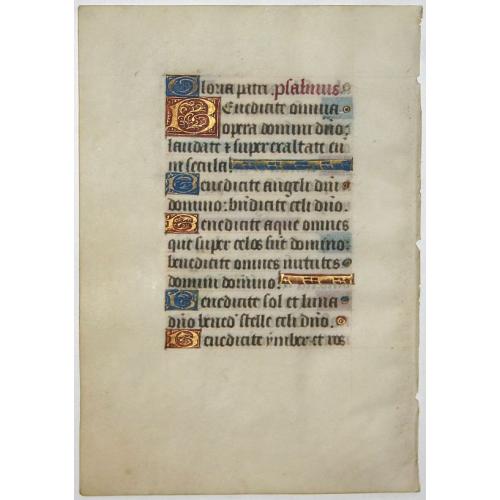 Gloria patri. psalmus.
Benedicite omnia
opera domini dño:
laudate ⁊ superexaltate eū
in secula.
Benedicite angeli dñi
domino: bñdicite celi dño.
Benedicite aque omnes
que super celos sūt domino:
benedicite omnes virtutes
domini domino.
Benedicite sol et luna
dño bened' stelle celi dño.
Benedicite ymber et ros